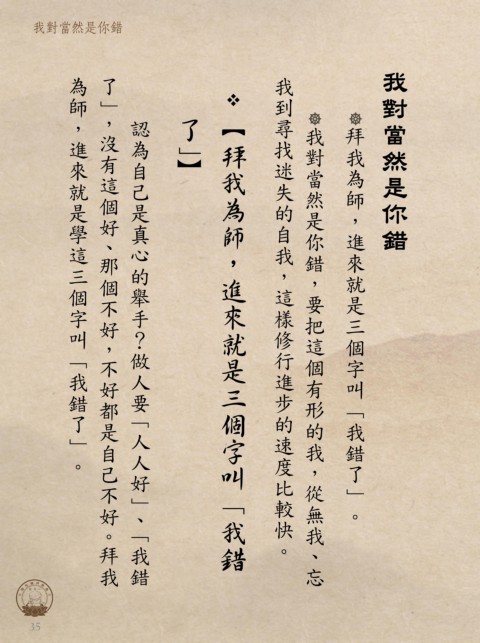 我對當然是你錯
我對當然是你錯
拜我為師，進來就是三個字叫「我錯了」。
我對當然是你錯，要把這個有形的我，從無我、忘
我到尋找迷失的自我，這樣修行進步的速度比較快。
❖【拜我為師，進來就是三個字叫「我錯
了」】
認為自己是真心的舉手？做人要「人人好」、「我錯
了」，沒有這個好、那個不好，不好都是自己不好。拜我
為師，進來就是學這三個字叫「我錯了」。
35